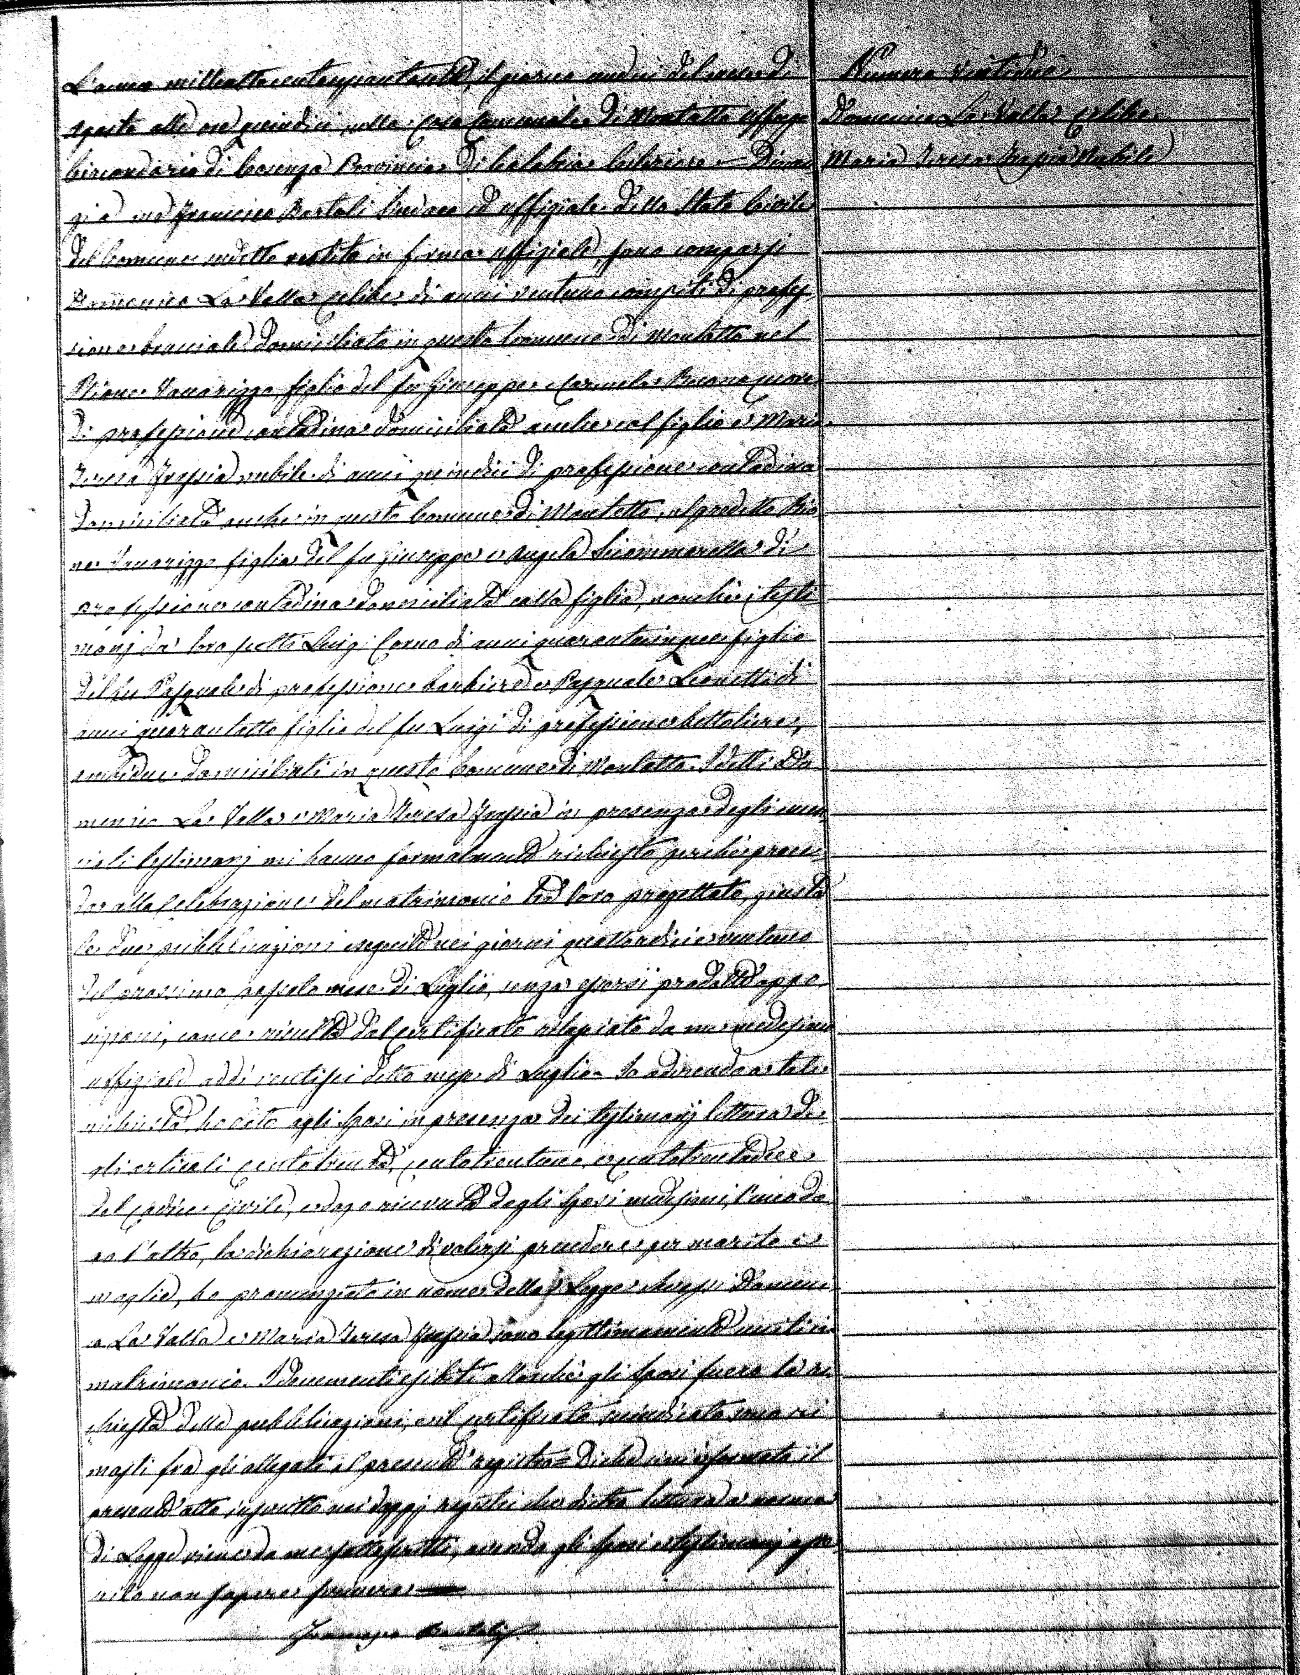 L'anno milleottocentosessantasette, il giorno undici del mese di
Agosto alle ore quindici nella Casa Comunale di Montalto Uffugo
Circondario di Cosenza Provincia di Calabria Citeriore = Dinan
zi a me Francesco Bartoli Sindaco ed uffiziale dello Stato Civile
del Comune suddetto vestito in forma uffiziale, sono comparsi
Domenico La Valla celibe di anni ventuno compiti di profes
sione bracciale domiciliato in questo Comune di Montalto nel
Rione Vaccarizzo figlio del fu Giuseppe e Carmela
di professione contadina domiciliata anche col figlio e Maria
Teresa Frassia nubile di anni quindici di professione contadina
domiciliata anche in questo Comune di Montalto, nel predetto Rio
ne Vaccarizzo figlia del fu Giuseppe e Angela Sicommarella di
professione contadina domiciliata colla figlia, nonché i testi
monj da loro scelti Luigi Corno di anni quarantacinque figlio
del fu Pasquale di professione barbiere e Pasquale Leonetti di
anni quarantotto figlio del fu Luigi di professione bettoliere,
ambidue domiciliati in questo Comune di Montalto. I detti Do
menico La Valla e Maria Teresa Frassia in presenza degli enun
ciati testimonj mi hanno formalmente richiesto perché proce
da alla celebrazione del matrimonio tra loro progettato, giusta
le due pubblicazioni eseguite nei giorni quattordici e ventuno
del prossimo passato mese di Luglio, senza essersi prodotte oppo
sizioni, come risulta dal certificato rilasciato da me medesimo
uffiziale addì ventisei detto mese di Luglio. Io aderendo a tale
richiesta, ho dato agli sposi in presenza dei testimonj lettura de
gli articoli centotrenta, centotrentuno, e centotrentadue
del Codice Civile, e dopo ricevuta dagli sposi medesimi, l'uno do
po l'altro, la dichiarazione di volersi prendere per marito e
moglie, ho pronunziato in nome della Legge che essi Domeni
co La Valla e Maria Teresa Frassia sono legittimamente uniti in
matrimonio. I documenti esibiti allorché gli sposi fecero la ri
chiesta delle pubblicazioni, e il certificato suindicato sono ri
masti fra gli allegati al presente registro = Di che si è formato il
presente atto inscritto nei doppj registri che dietro lettura a norma
di Legge viene da me sottoscritto, avendo gli sposi e testimonj asse
rito non sapere scrivere
Francesco Bartoli
Numero ventidue
Domenico La Valla celibe
Maria Teresa Frassia Nubile